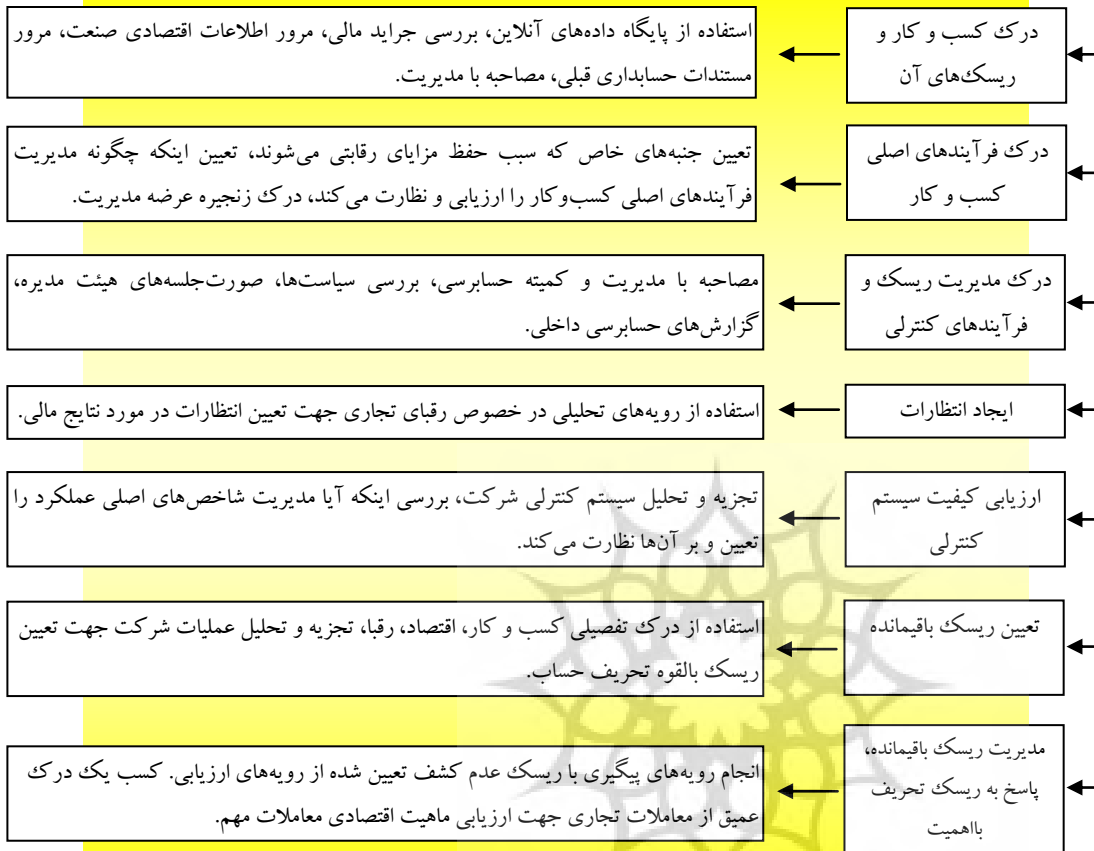 درک کسب و کار و
ریسک‌های آن
استفاده از پایگاه داده‌های آنلاین، بررسی جراید مالی، مرور اطلاعات اقتصادی صنعت، مرور
مستندات حسابداری قبلی، مصاحبه با مدیریت.
درک فرآیندهای اصلی
کسب و کار
تعیین جنبه‌های خاص که سبب حفظ مزایای رقابتی می‌شوند، تعیین اینکه چگونه مدیریت
فرآیندهای اصلی کسب‌وکار را ارزیابی و نظارت می‌کند، درک زنجیره عرضه مدیریت.
درک مدیریت ریسک و
فرآیندهای کنترلی
مصاحبه با مدیریت و کمیته حسابرسی، بررسی سیاست‌ها، صورت‌جلسه‌های هیئت مدیره،
گزارش‌های حسابرسی داخلی.
ایجاد انتظارات
استفاده از رویه‌های تحلیلی در خصوص رقبای تجاری جهت تعیین انتظارات در مورد نتایج مالی.
ارزیابی کیفیت سیستم
کنترلی
تجزیه و تحلیل سیستم کنترلی شرکت، بررسی اینکه آیا مدیریت شاخص‌های اصلی عملکرد را
تعیین و بر آن‌ها نظارت می‌کند.
تعیین ریسک باقیمانده
استفاده از درک تفصیلی کسب و کار، اقتصاد، رقبا، تجزیه و تحلیل عملیات شرکت جهت تعیین
ریسک بالقوه تحریف حساب.
مدیریت ریسک باقیمانده،
پاسخ به ریسک تحریف
بااهمیت
انجام رویه‌های پیگیری با ریسک عدم کشف تعیین شده از رویه‌های ارزیابی. کسب یک درک
عمیق از معاملات تجاری جهت ارزیابی ماهیت اقتصادی معاملات مهم.